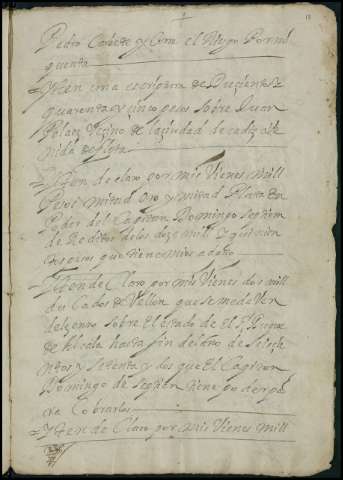 Pedro Corbete y CoRe el Riesgo Por mi
quenta
Yten una escriptura de Duçientos y
quarenta y cinco pesos sobre Juan
Pelaez Veçino de la ciudad de cadiz
de flota
Yten de claro por mis Vienes mill
Pesos mitad oro y mitad Plata en
Poder del Capitan Domingo
de Reditos de los doze mill y quinien
tos pesos que tiene mios a daño
Yten de Claro por mis Vienes dos mill
du Cados de Vellon que se me deVen
del çenso sobre El estado de El S. Duque
de Alcala hasta fin del año de Seisçie
ntos y Setenta y dos que El Capitan
Domingo de tiene poder pa
ra Cobrarlos
Yten de Claro por mis Vienes mill